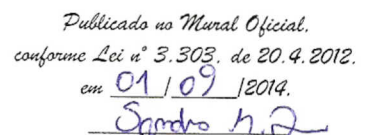 Publicado no Mural Oficial.
conforme Lei nº 3.303. de 20.4.2012.
em 01 / 09 /2014.
Sandro